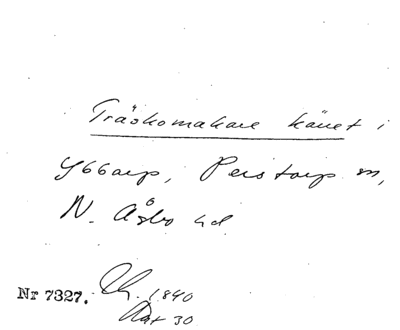 Träskomakare känet i
Ybbarp, Perstorp sn,
N. Åsbo hd
Nr 7327.
1840
30